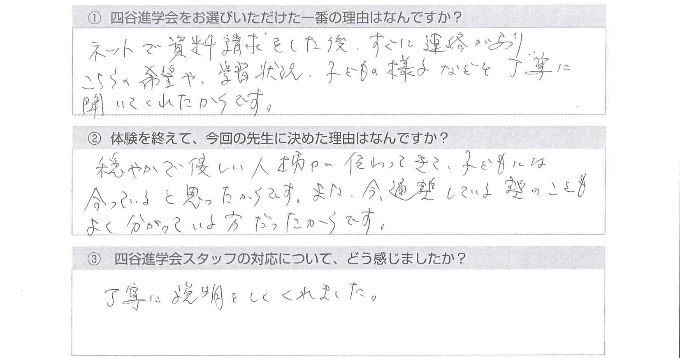 ① 四谷進学会をお選びいただけた一番の理由はなんですか?
ネットで資料請求をした後、すぐに連絡があり、
こちらの希望や、学習状況、子どもの様子などを丁寧に
聞いてくれたからです。
② 体験を終えて、今回の先生に決めた理由はなんですか?
穏やかで優しい人柄が伝わってきて、子どもには
合っていると思ったからです。また、今、通塾している塾のことも
よく分かっている方だったからです。
③ 四谷進学会スタッフの対応について、どう感じましたか?
丁寧に説明をしてくれました。